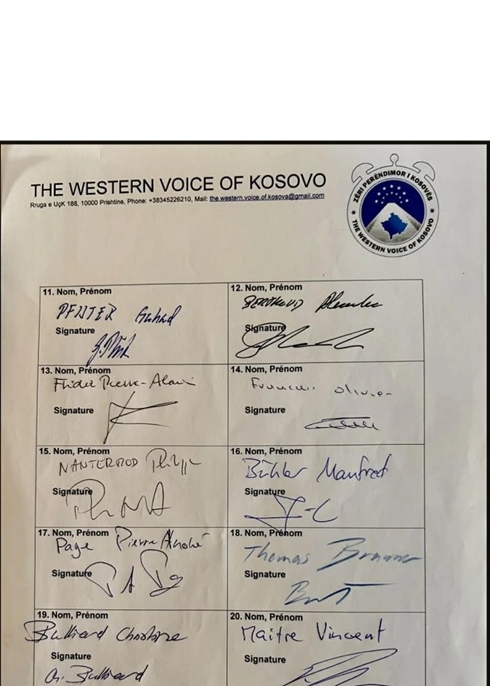 THE WESTERN VOICE OF KOSOVO
Rruga e UÇK 188, 10000 Prishtine, Phone: +38345226210, Mail: the.western.voice.of.kosova@gmail.com
ZËRI PERËNDIMOR I KOSOVËS
THE WESTERN VOICE OF KOSOVO
11. Nom, Prénom
PFISTER Gerhard
Signature
12. Nom, Prénom
Signature
13. Nom, Prénom
Pierre-Alain
Signature
14. Nom, Prénom
Français Olivier
Signature
15. Nom, Prénom
NANTERMOD Philippe
Signature
16. Nom, Prénom
Bühler Manfred
Signature
17. Nom, Prénom
Page Pierre-André
Signature
18. Nom, Prénom
Thomas Brunner
Signature
19. Nom, Prénom
Bulliard Christine
Signature
Ch. Bulliard
20. Nom, Prénom
Maitre Vincent
Signature